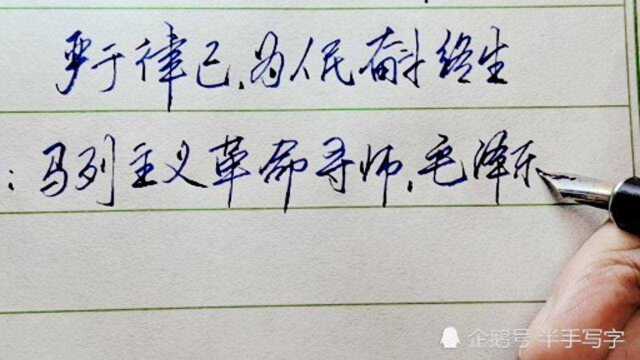 严于律己,为人民奋斗终生
:马列主义革命导师,毛泽东
企鹅号 半手写字